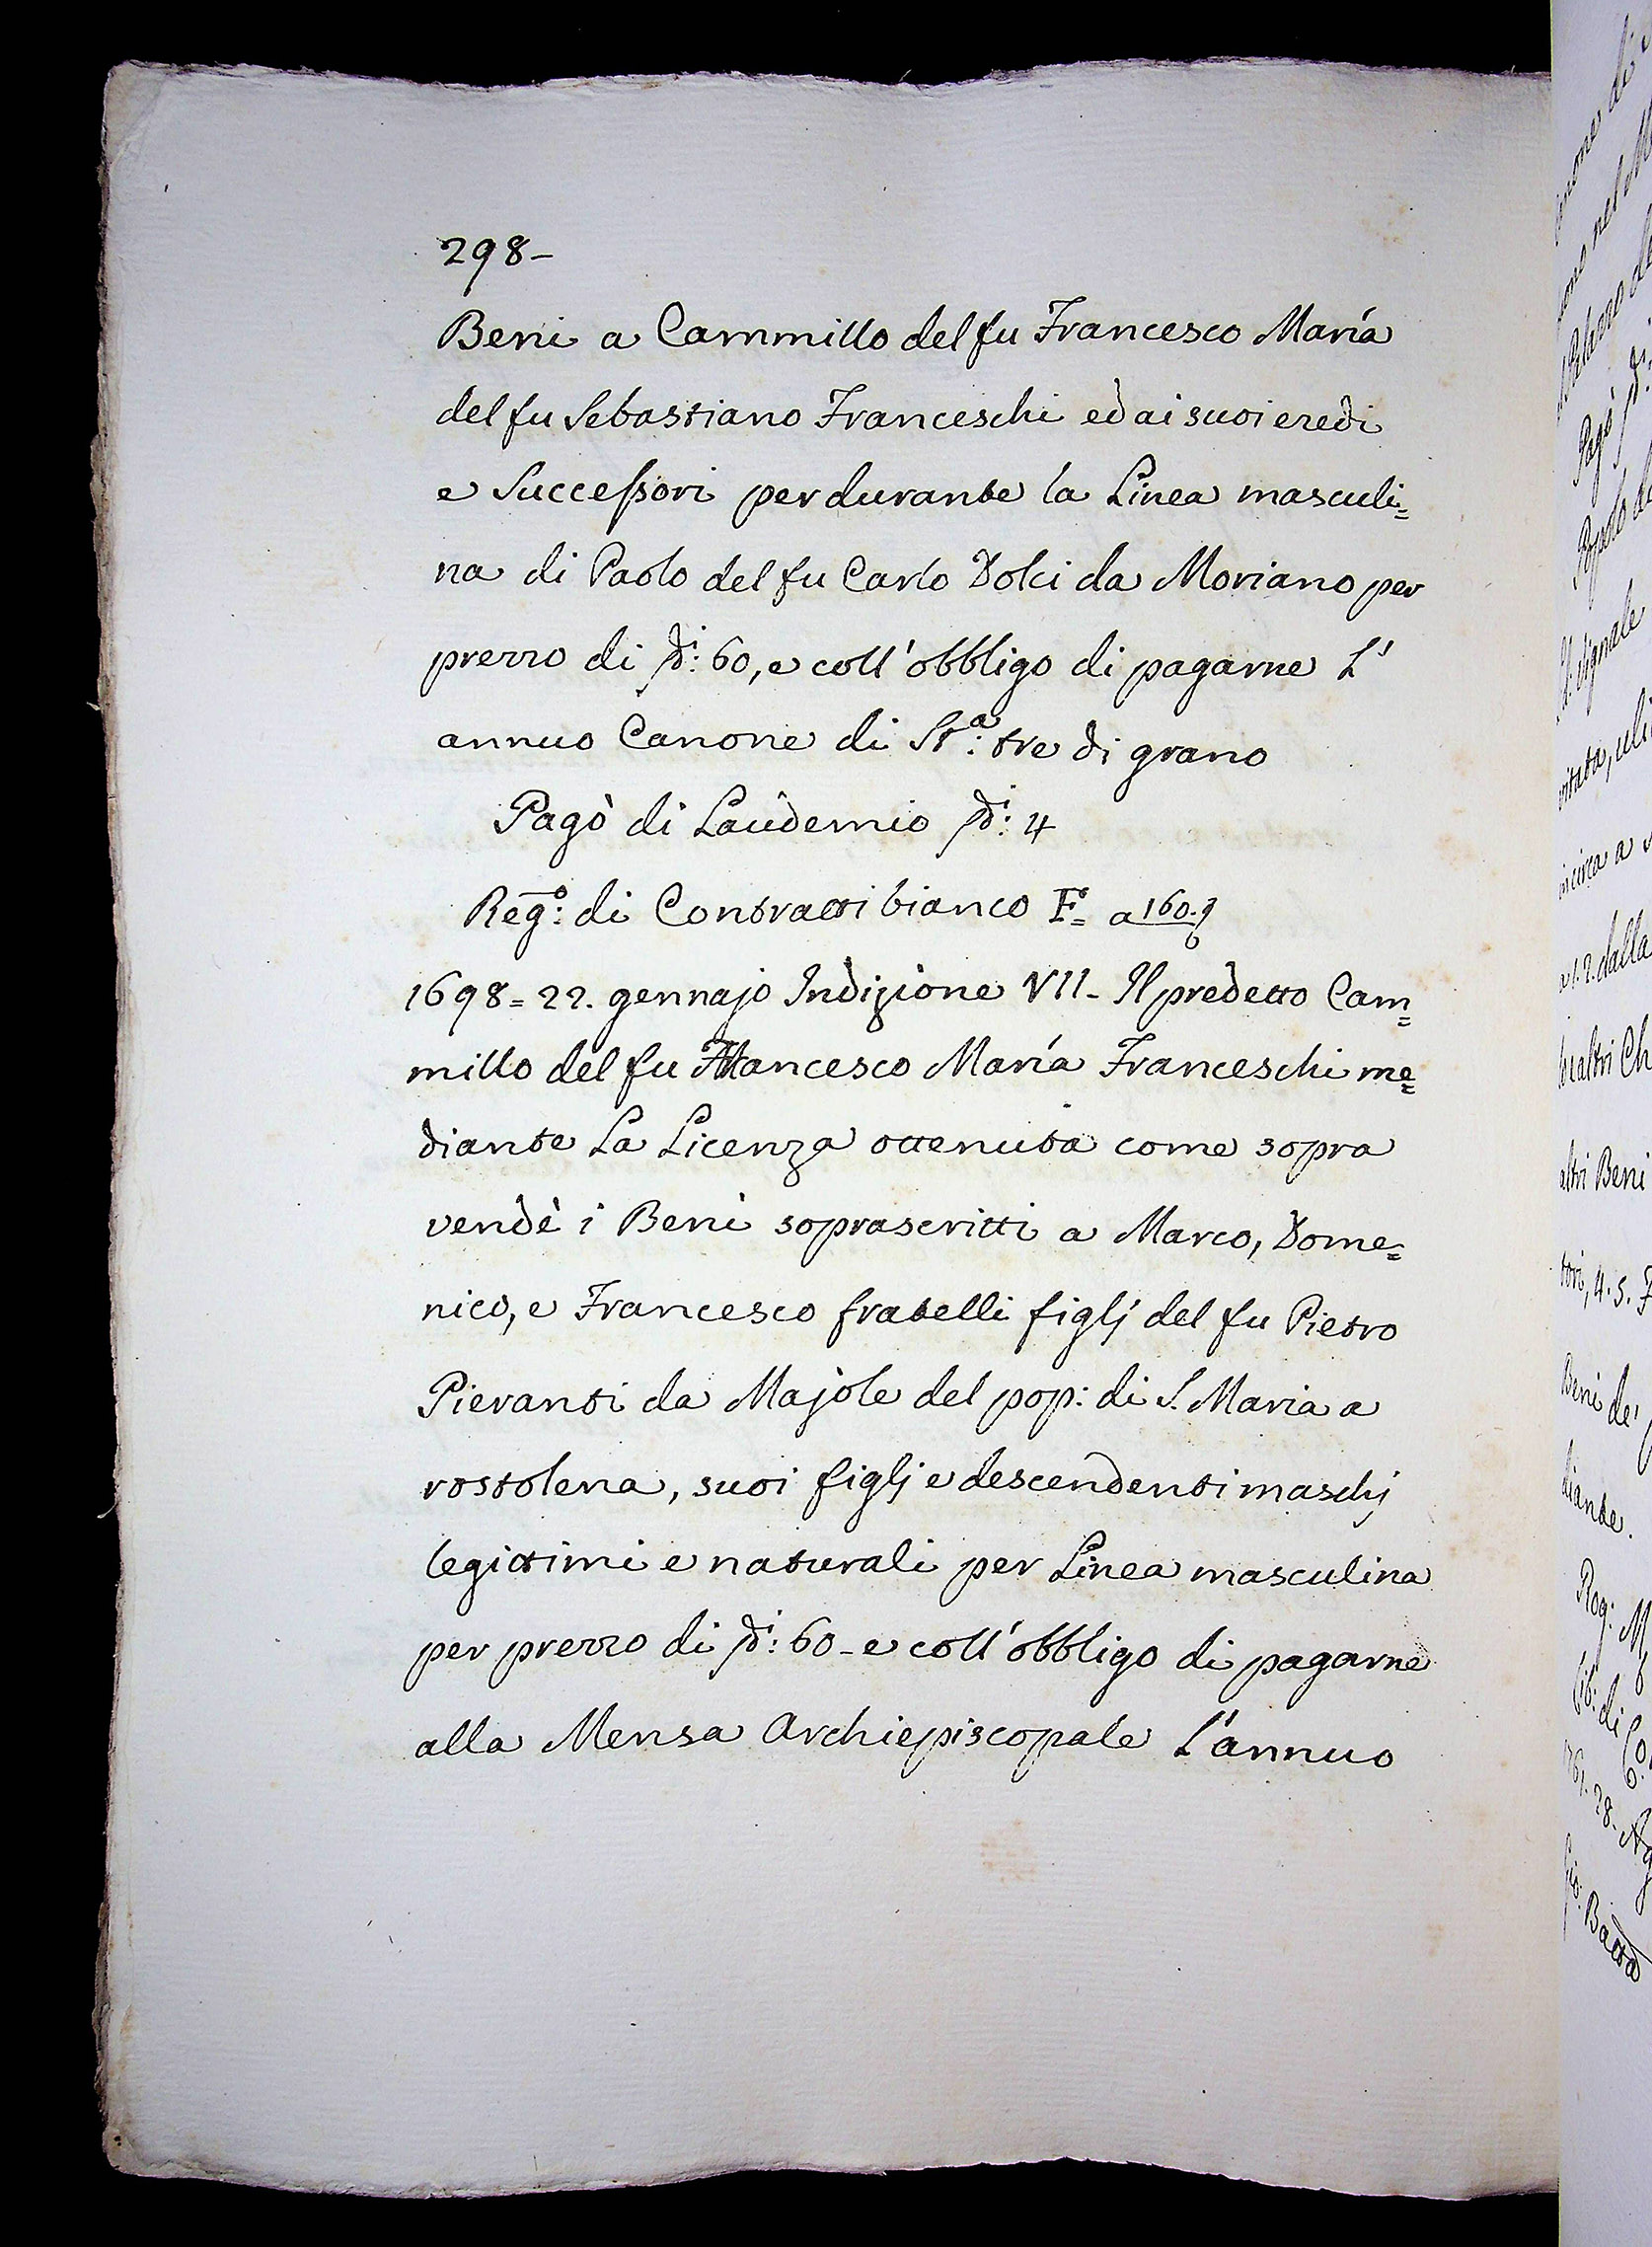 298-
Beni a Cammillo del fu Francesco Maria
del fu Sebastiano Franceschi ed ai suoi eredi
e Successori per durante la Linea masculi=
na di Paolo del fu Carlo Dolci da Moriano per
prezzo di di: 60, e coll'obbligo di pagarne L'
annuo Canone di St.ª: tre di grano
Pagò di Laudemio di: 4
Reg.º: di Contratti bianco F= a 160.
1698=22. gennajo Indizione VII- Il predetto Cam=
millo del fu Francesco Maria Franceschi me=
diante La Licenza ottenuta come sopra
vendè i Beni soprascritti a Marco, Dome=
nico, e Francesco fratelli figlj del fu Pietro
Pieranti da Majole del pop: di S. Maria a
rostolena, suoi figlj e descendenti maschj
legittimi e naturali per Linea masculina
per prezzo di di: 60- e coll'obbligo di pagarne
alla Mensa Archiepiscopale L'annuo
Pagò
dalla
altri Ch
altri Beni
Beni de'
diante.
Rog: